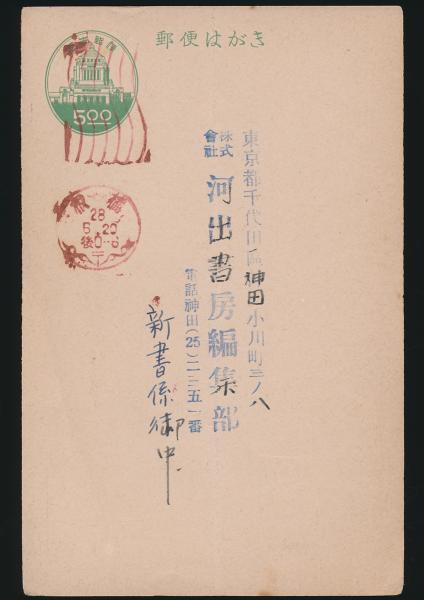 郵便はがき
5.00
板橋
28
5.20
後0-6
東京都千代田區神田小川町三ノ八
株式會社 河出書房編集部
電話神田(25)二一三五一番
新書係御中